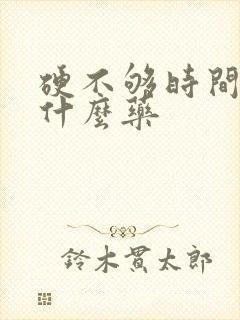 硬不够時間
什麼藥
鈴木貫太郎